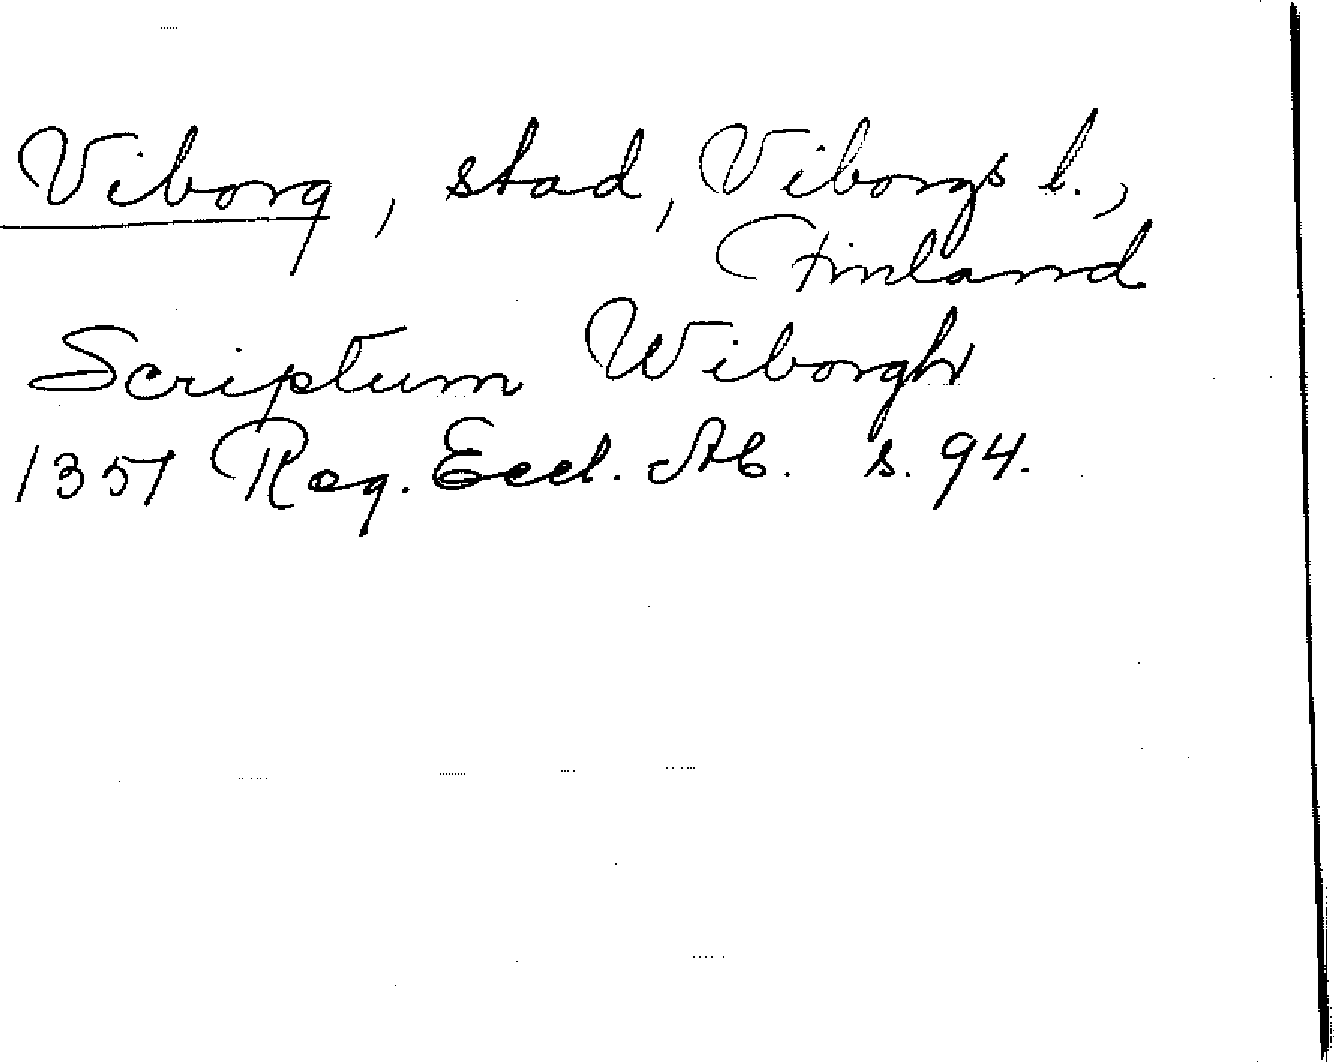 Viborg, stad, Viborgs l.,
Finland
Scriptum Wiborgh
1357 Reg. Eccl. Ab. s. 94.